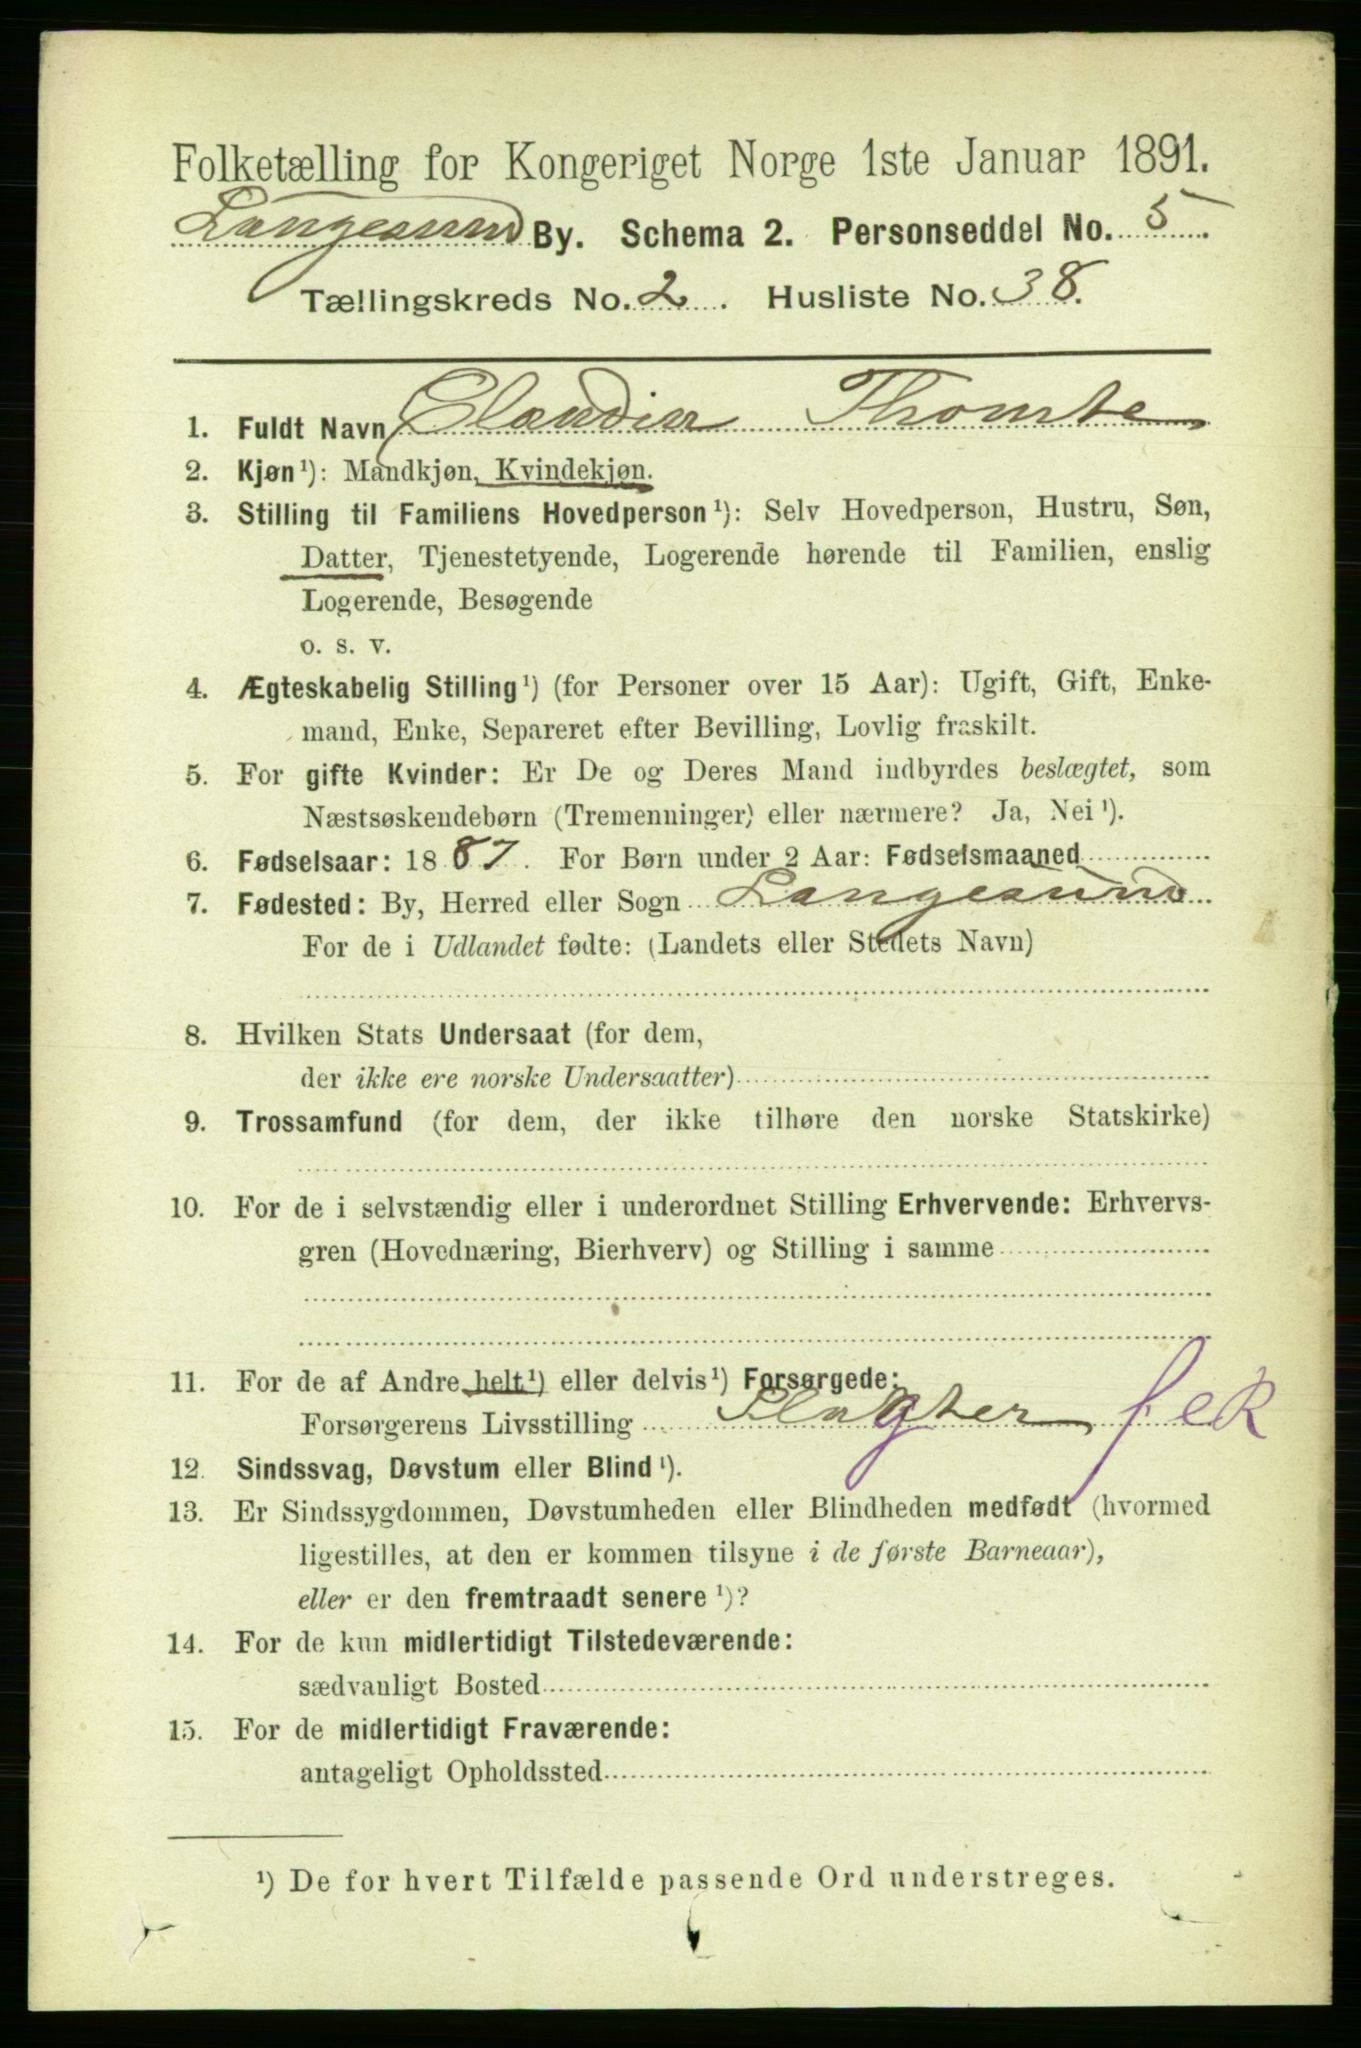 Folketælling for Kongeriget Norge 1ste Januar 1891.
Langesund By. Schema 2. Personseddel No. 5
Tællingskreds No. 2. Husliste No. 38.
1. Fuldt Navn Claudia Thomte
2. Kjøn¹): Mandkjøn, Kvindekjøn.
3. Stilling til Familiens Hovedperson¹): Selv Hovedperson, Hustru, Søn,
Datter, Tjenestetyende, Logerende hørende til Familien, enslig
Logerende, Besøgende
o. s. v.
4. Ægteskabelig Stilling¹) (for Personer over 15 Aar): Ugift, Gift, Enke-
mand, Enke, Separeret efter Bevilling, Lovlig fraskilt.
5. For gifte Kvinder: Er De og Deres Mand indbyrdes beslægtet, som
Næstsøskendebørn (Tremenninger) eller nærmere? Ja, Nei¹).
6. Fødselsaar: 1887. For Børn under 2 Aar: Fødselsmaaned
7. Fødested: By, Herred eller Sogn Langesund
For de i Udlandet fødte: (Landets eller Stedets Navn)
8. Hvilken Stats Undersaat (for dem,
der ikke ere norske Undersaatter)
9. Trossamfund (for dem, der ikke tilhøre den norske Statskirke)
10. For de i selvstændig eller i underordnet Stilling Erhvervende: Erhvervs-
gren (Hovednæring, Bierhverv) og Stilling i samme
11. For de af Andre helt¹) eller delvis¹) Forsørgede:
Forsørgerens Livsstilling Slagter
12. Sindssvag, Døvstum eller Blind¹).
13. Er Sindssygdommen, Døvstumheden eller Blindheden medfødt (hvormed
ligestilles, at den er kommen tilsyne i de første Barneaar),
eller er den fremtraadt senere¹)?
14. For de kun midlertidigt Tilstedeværende:
sædvanligt Bosted
15. For de midlertidigt Fraværende:
antageligt Opholdssted
¹) De for hvert Tilfælde passende Ord understreges.